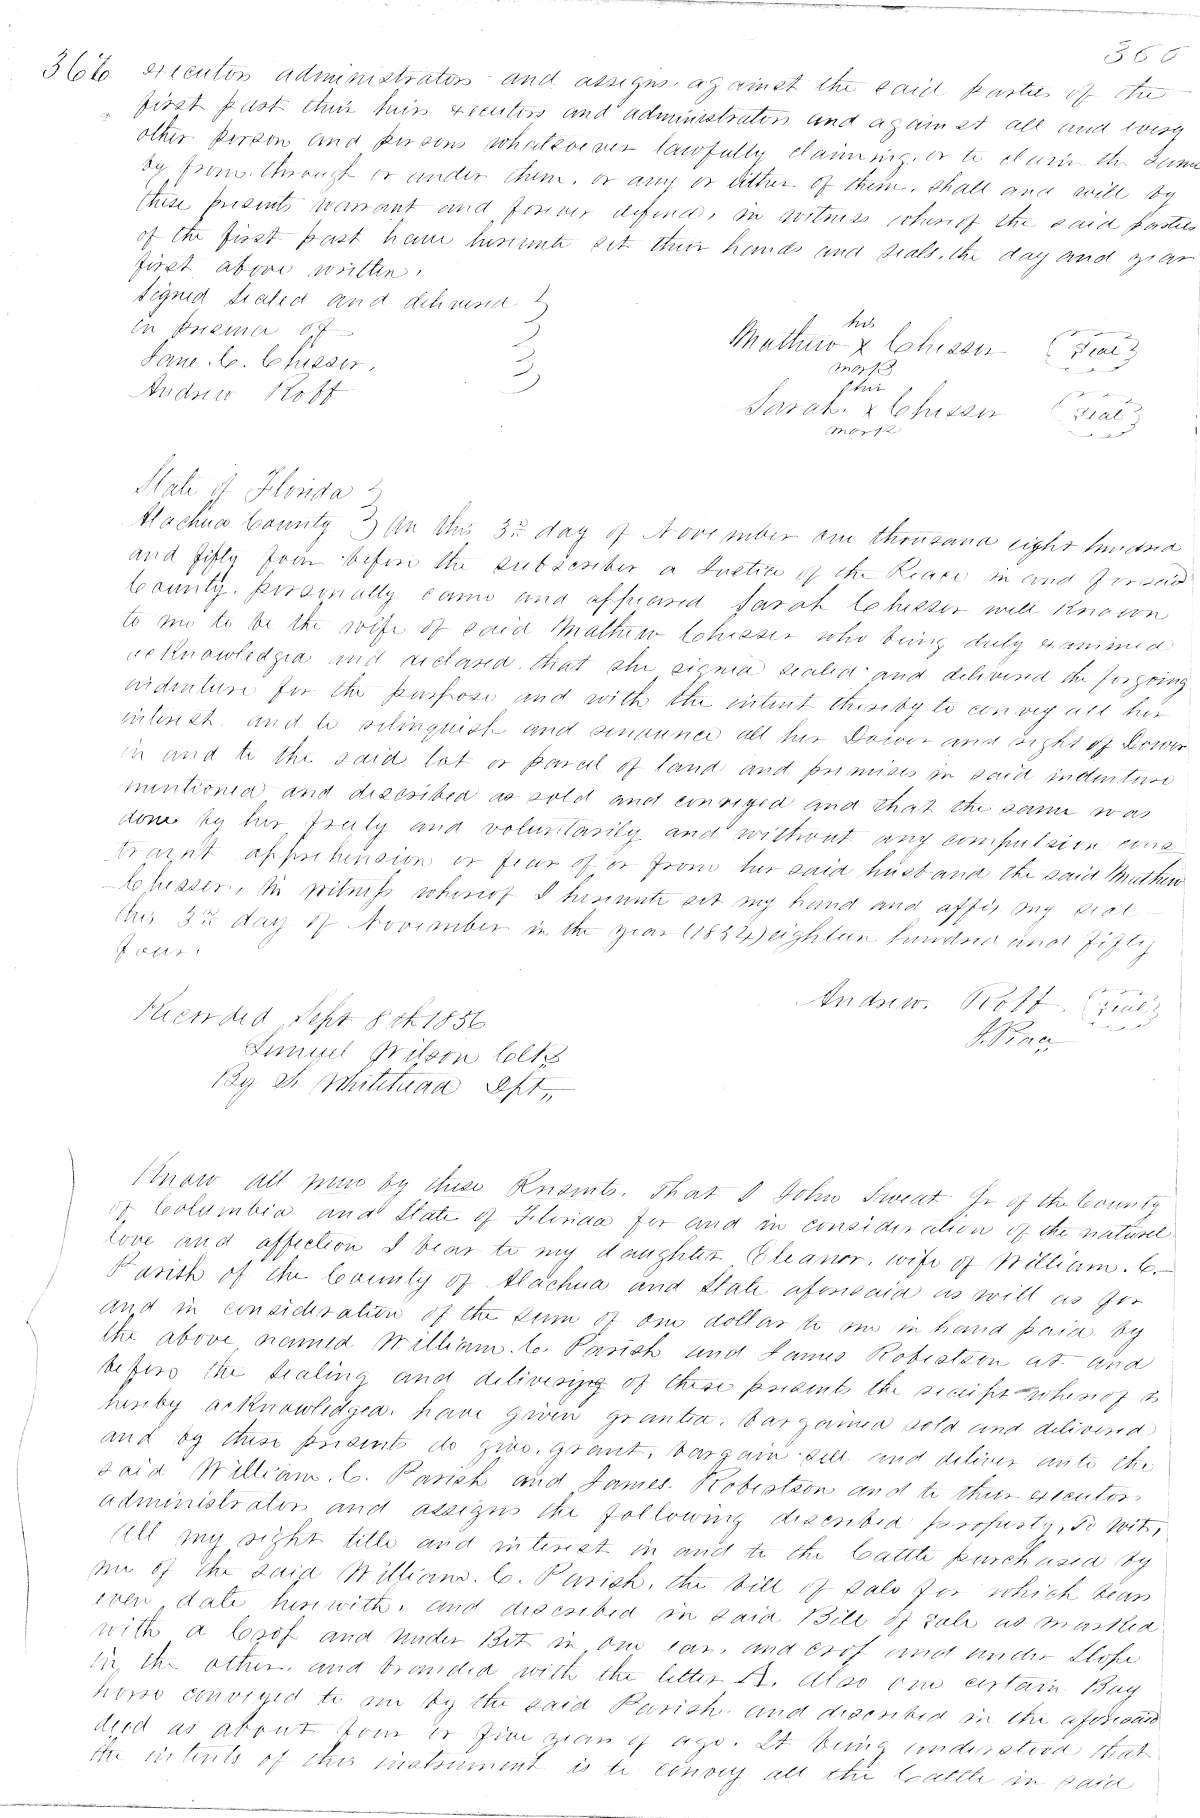 366
executors administrators and assigns. against the said parties of the
first part their heirs executors and administrators and against all and every
other person and persons whatsoever lawfully claiming. or to claim the same
by from. through or under them. or any or either of them. shall and will by
these presents warrant and forever defend, in witness whereof the said parties
of the first part have hereunto set their hands and seals. the day and year
first above written.
Signed Sealed and delivered }
in presence of }
Jane. C. Chesser. }
Andrew Roff }
his
Mathew x Chesser (Seal)
mark
her
Sarah. x Chesser (Seal)
mark
State of Florida }
Alachua County } On this 3rd day of November one thousand eight hundred
and fifty four before the subscriber a Justice of the Peace in and for said
County. personally came and appeared Sarah Chesser well known
to me to be the wife of said Mathew Chesser who being duly examined
acknowledged and declared. that she signed sealed and delivered the forgoing
indenture for the purpose and with the intent thereby to convey all her
interest. and to relinquish and renounce all her Dower and right of Dower
in and to the said lot or parcel of land and premises in said indenture
mentioned and described as sold and conveyed and that the same was
done by her freely and voluntarily and without any compulsion cons
traint apprehension or fear of or from her said husband the said Mathew
Chesser, In witness whereof I hereunto set my hand and affix my seal
this 3rd day of November in the year (1854) eighteen hundred and fifty
four.
Andrew. Roff (Seal)
J. Peace
Recorded Sept 8th 1856
Samuel Wilson Clk
By S Whitehead Dpt,,
Know all men by these Presents. That I John Sweat Jr of the County
of Columbia and State of Florida for and in consideration of the natural
love and affection I bear to my daughter Eleanor. wife of William. C.
Parish of the County of Alachua and State aforesaid as will as for
and in consideration of the sum of one dollar to me in hand paid by
the above named William. C. Parish and James Robertson at and
before the sealing and delivering of these presents the receipt whereof is
hereby acknowledged. have given granted. bargained sold and delivered
and by these presents do give. grant. bargain sell and deliver unto the
said William. C. Parish and James. Robertson and to their executors
administrators and assigns the following described property, To wit,
All my right title and interest in and to the Cattle purchased by
me of the said William. C. Parish. the bill of sale for which bears
even date herewith. and described in said Bill of sale as marked
with a Crop and under Bit in one ear. and crop and under Slope
in the other. and branded with the letter A. Also one certain Bay
horse conveyed to me by the said Parish. and described in the aforesaid
deed as about four or five years of age. It being understood that
the intents of this instrument is to convey all the Cattle in said